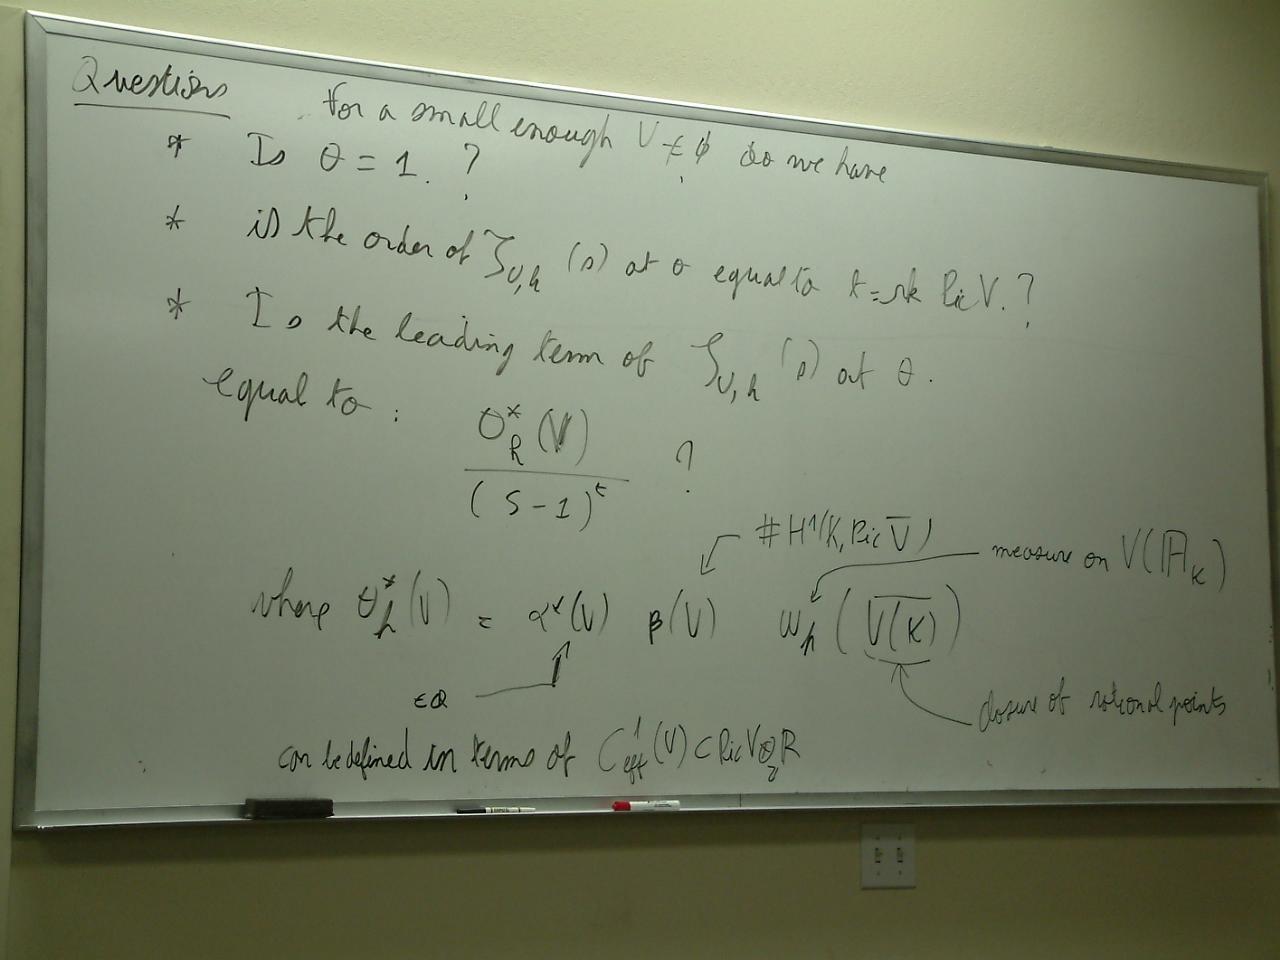 Questions For a small enough U ≠ ∅ do we have
* Is θ = 1. ?
* is the order of ζ_{U,h} (s) at θ equal to t = rk Pic V. ?
* Is the leading term of ζ_{U,h} (s) at θ.
equal to : θ*_h (V) / (S - 1)^t ?
# H¹(K, Pic V̅)
measure on V(𝔸_K)
where θ*_h (V) = α*(V) β(V) ω_h ( \overline{V(K)} )
∈ Q
closure of rational points
can be defined in terms of C¹_eff (V) ⊂ Pic V ⊗_Z R